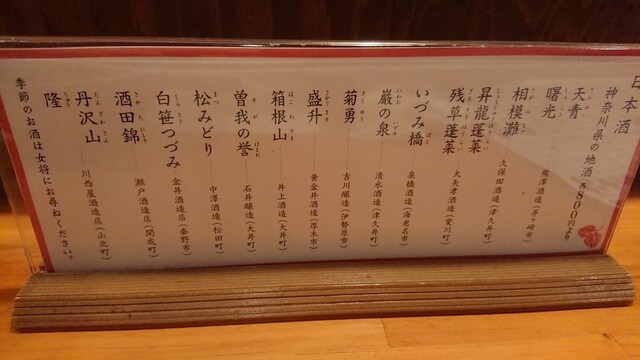 日本酒
神奈川県の地酒 各800円より
天青
曙光 熊澤酒造(茅ヶ崎市)
相模灘 久保田酒造(津久井町)
昇龍蓬莱
残草蓬莱 大矢孝酒造(愛川町)
いづみ橋 泉橋酒造(海老名市)
巌の泉 清水酒造(津久井町)
菊勇 吉川醸造(伊勢原市)
盛升 黄金井酒造(厚木市)
箱根山 井上酒造(大井町)
曽我の誉 石井醸造(大井町)
松みどり 中澤酒造(松田町)
白笹つづみ 金井酒造店(秦野市)
酒田錦 瀬戸酒造店(開成町)
丹沢山 川西屋酒造店(山北町)
隆
季節のお酒は女将にお尋ねください。